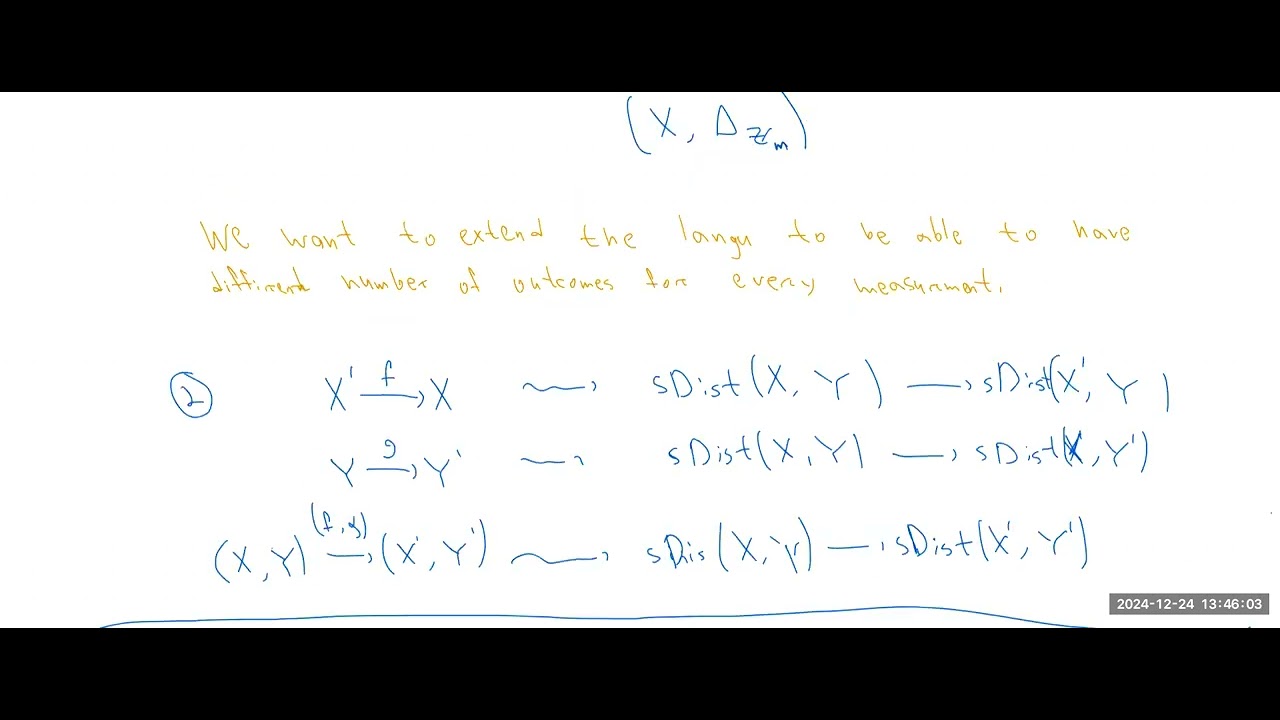 (X, Δ_{ℤ_m})
We want to extend the langu to be able to have
different number of outcomes for every measurment.
② X' —f→ X ⇝ sDist(X, Y) → sDist(X', Y)
Y —g→ Y' ⇝ sDist(X, Y) → sDist(X, Y')
(X, Y) —(f, g)→ (X', Y') ⇝ sDis(X, Y) → sDist(X', Y')
2024-12-24 13:46:03